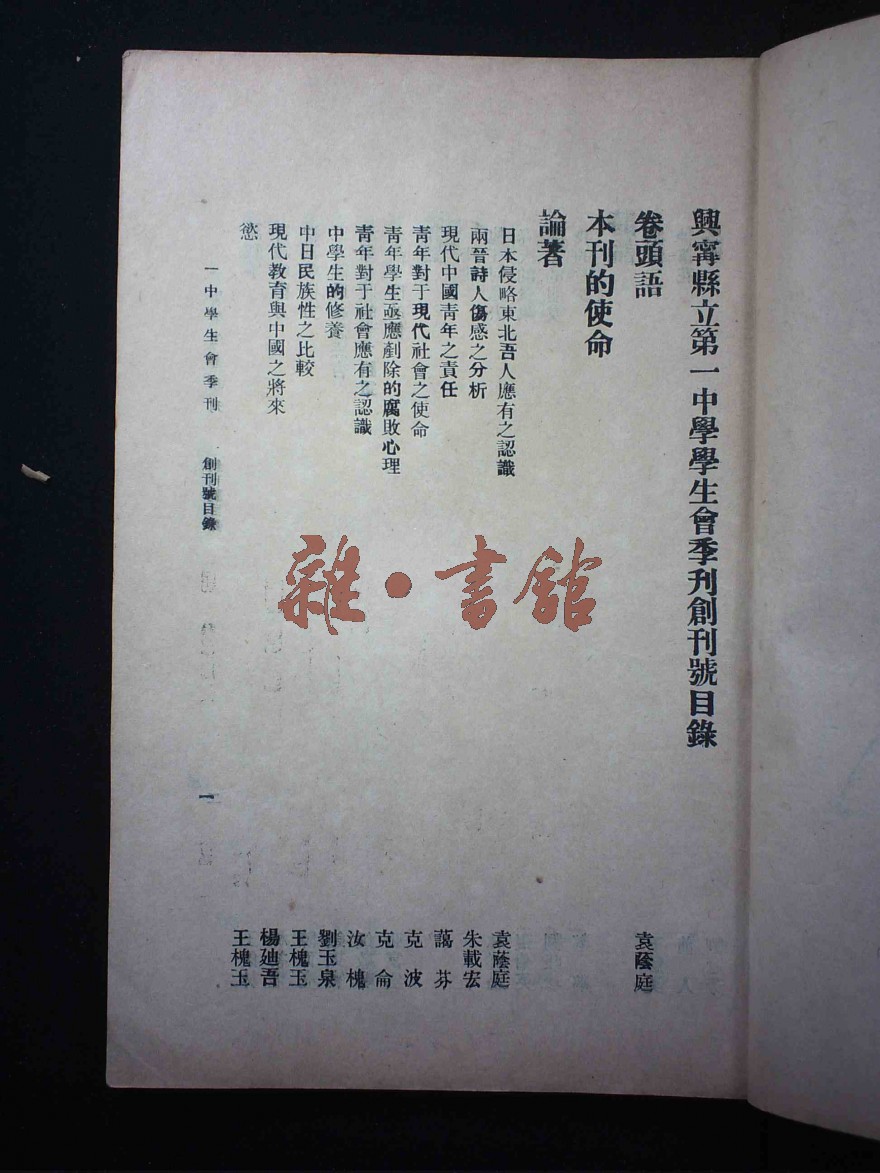 興寗縣立第一中學學生會季刋創刊號目錄
卷頭語 袁蔭庭
本刊的使命
論著
日本侵略東北吾人應有之認識 袁蔭庭
兩晉詩人傷感之分析 朱載宏
現代中國靑年之責任 藹芬
靑年對于現代社會之使命 克波
靑年學生亟應剷除的腐敗心理 克侖
靑年對于社會應有之認識 汝槐
中學生的修養 劉玉泉
中日民族性之比較 王槐玉
現代教育與中國之將來 楊廸吾
慾 王槐玉
一中學生會季刊 創刊號目錄 一
雜·書館